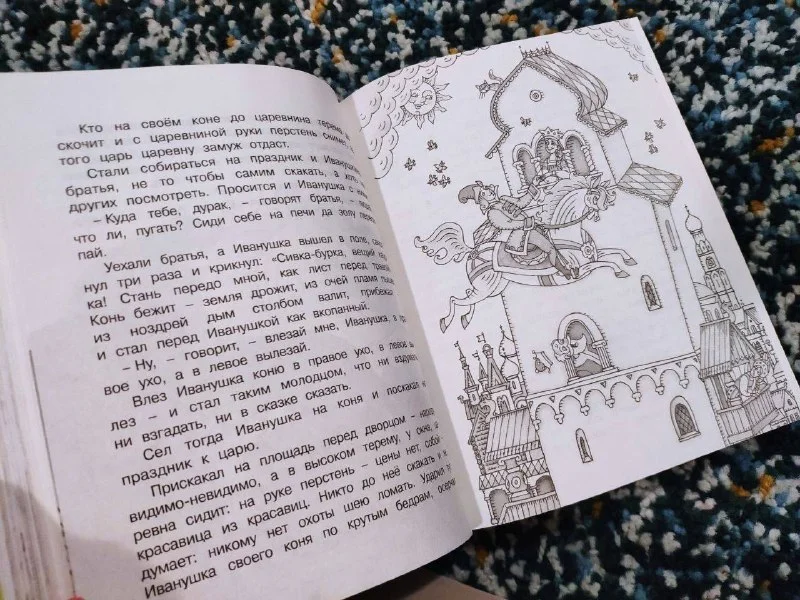 Кто на своём коне до царевнина терема
скочит и с царевниной руки перстень
того царь царевну замуж отдаст.
Стали собираться на праздник и Иванушкины
братья, не то чтобы самим скакать, а хоть
других посмотреть. Просится и Иванушка с
– Куда тебе, дурак, – говорят братья, –
что ли, пугать? Сиди себе на печи да золу
пай.
Уехали братья, а Иванушка вышел в поле,
нул три раза и крикнул: «Сивка-бурка, вещий
ка! Стань передо мной, как лист перед
Конь бежит – земля дрожит, из очей пламя
из ноздрей дым столбом валит,
и стал перед Иванушкой как вкопанный.
– Ну, – говорит, – влезай мне, Иванушка, в
вое ухо, а в левое вылезай.
Влез Иванушка коню в правое ухо, в левое
лез – и стал таким молодцом, что ни
ни взгадать, ни в сказке сказать.
Сел тогда Иванушка на коня и поскакал
праздник к царю.
Прискакал на площадь перед дворцом –
видимо-невидимо, а в высоком терему, у окна,
ревна сидит: на руке перстень – цены нет, собой
красавица из красавиц. Никто до неё скакать и
думает: никому нет охоты шею ломать. Ударил
Иванушка своего коня по крутым бедрам,